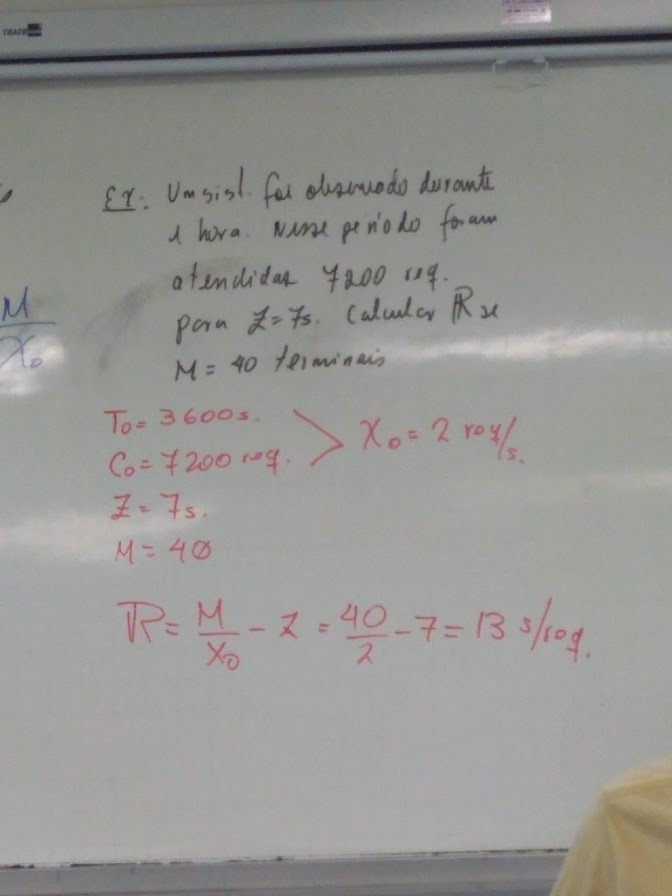 M
X₀
Ex: Um sist. foi observado durante
1 hora. Nesse período foram
atendidas 7200 req.
para Z=7s. Calcular R se
M = 40 terminais
T₀ = 3600s.
C₀ = 7200 req. > X₀ = 2 req/s.
Z = 7s.
M = 40
R = M/X₀ - Z = 40/2 - 7 = 13 s/req.